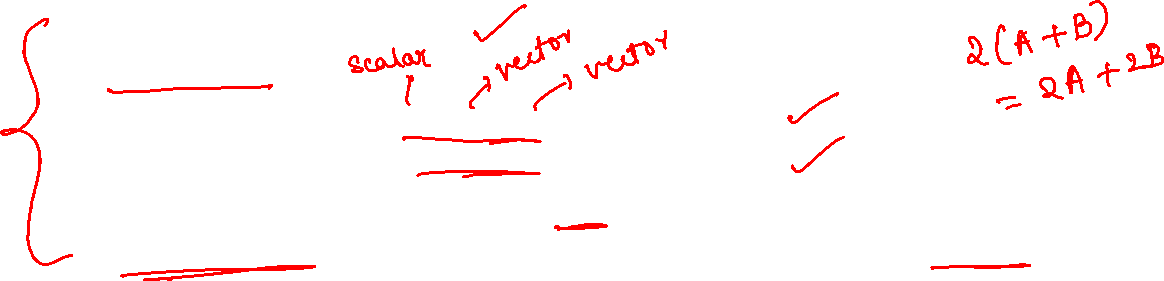 scalar
vector
vector
2(A+B)
= 2A + 2B